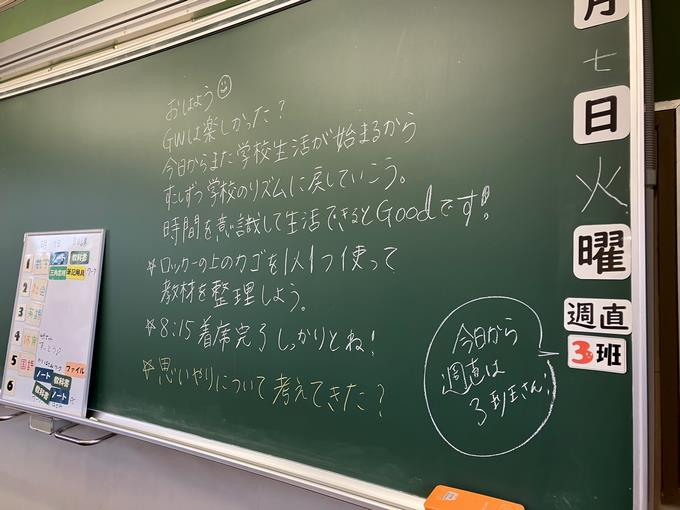 おはよう
GWは楽しかった？
今日からまた学校生活が始まるから
すこしずつ学校のリズムに戻していこう。
時間を意識して生活できるとGoodです！
☆ロッカーの上のカゴを1人1つ使って
教材を整理しよう。
☆8:15着席完了しっかりとね！
☆思いやりについて考えてきた？
今日から
週直は
3班さん！
月
七
日
火
曜
週直
3班
1
ノート
教科書
2
社会
3
英語
4
体育
5
国語
ファイル
6
ノート
教科書
教科書
ノート